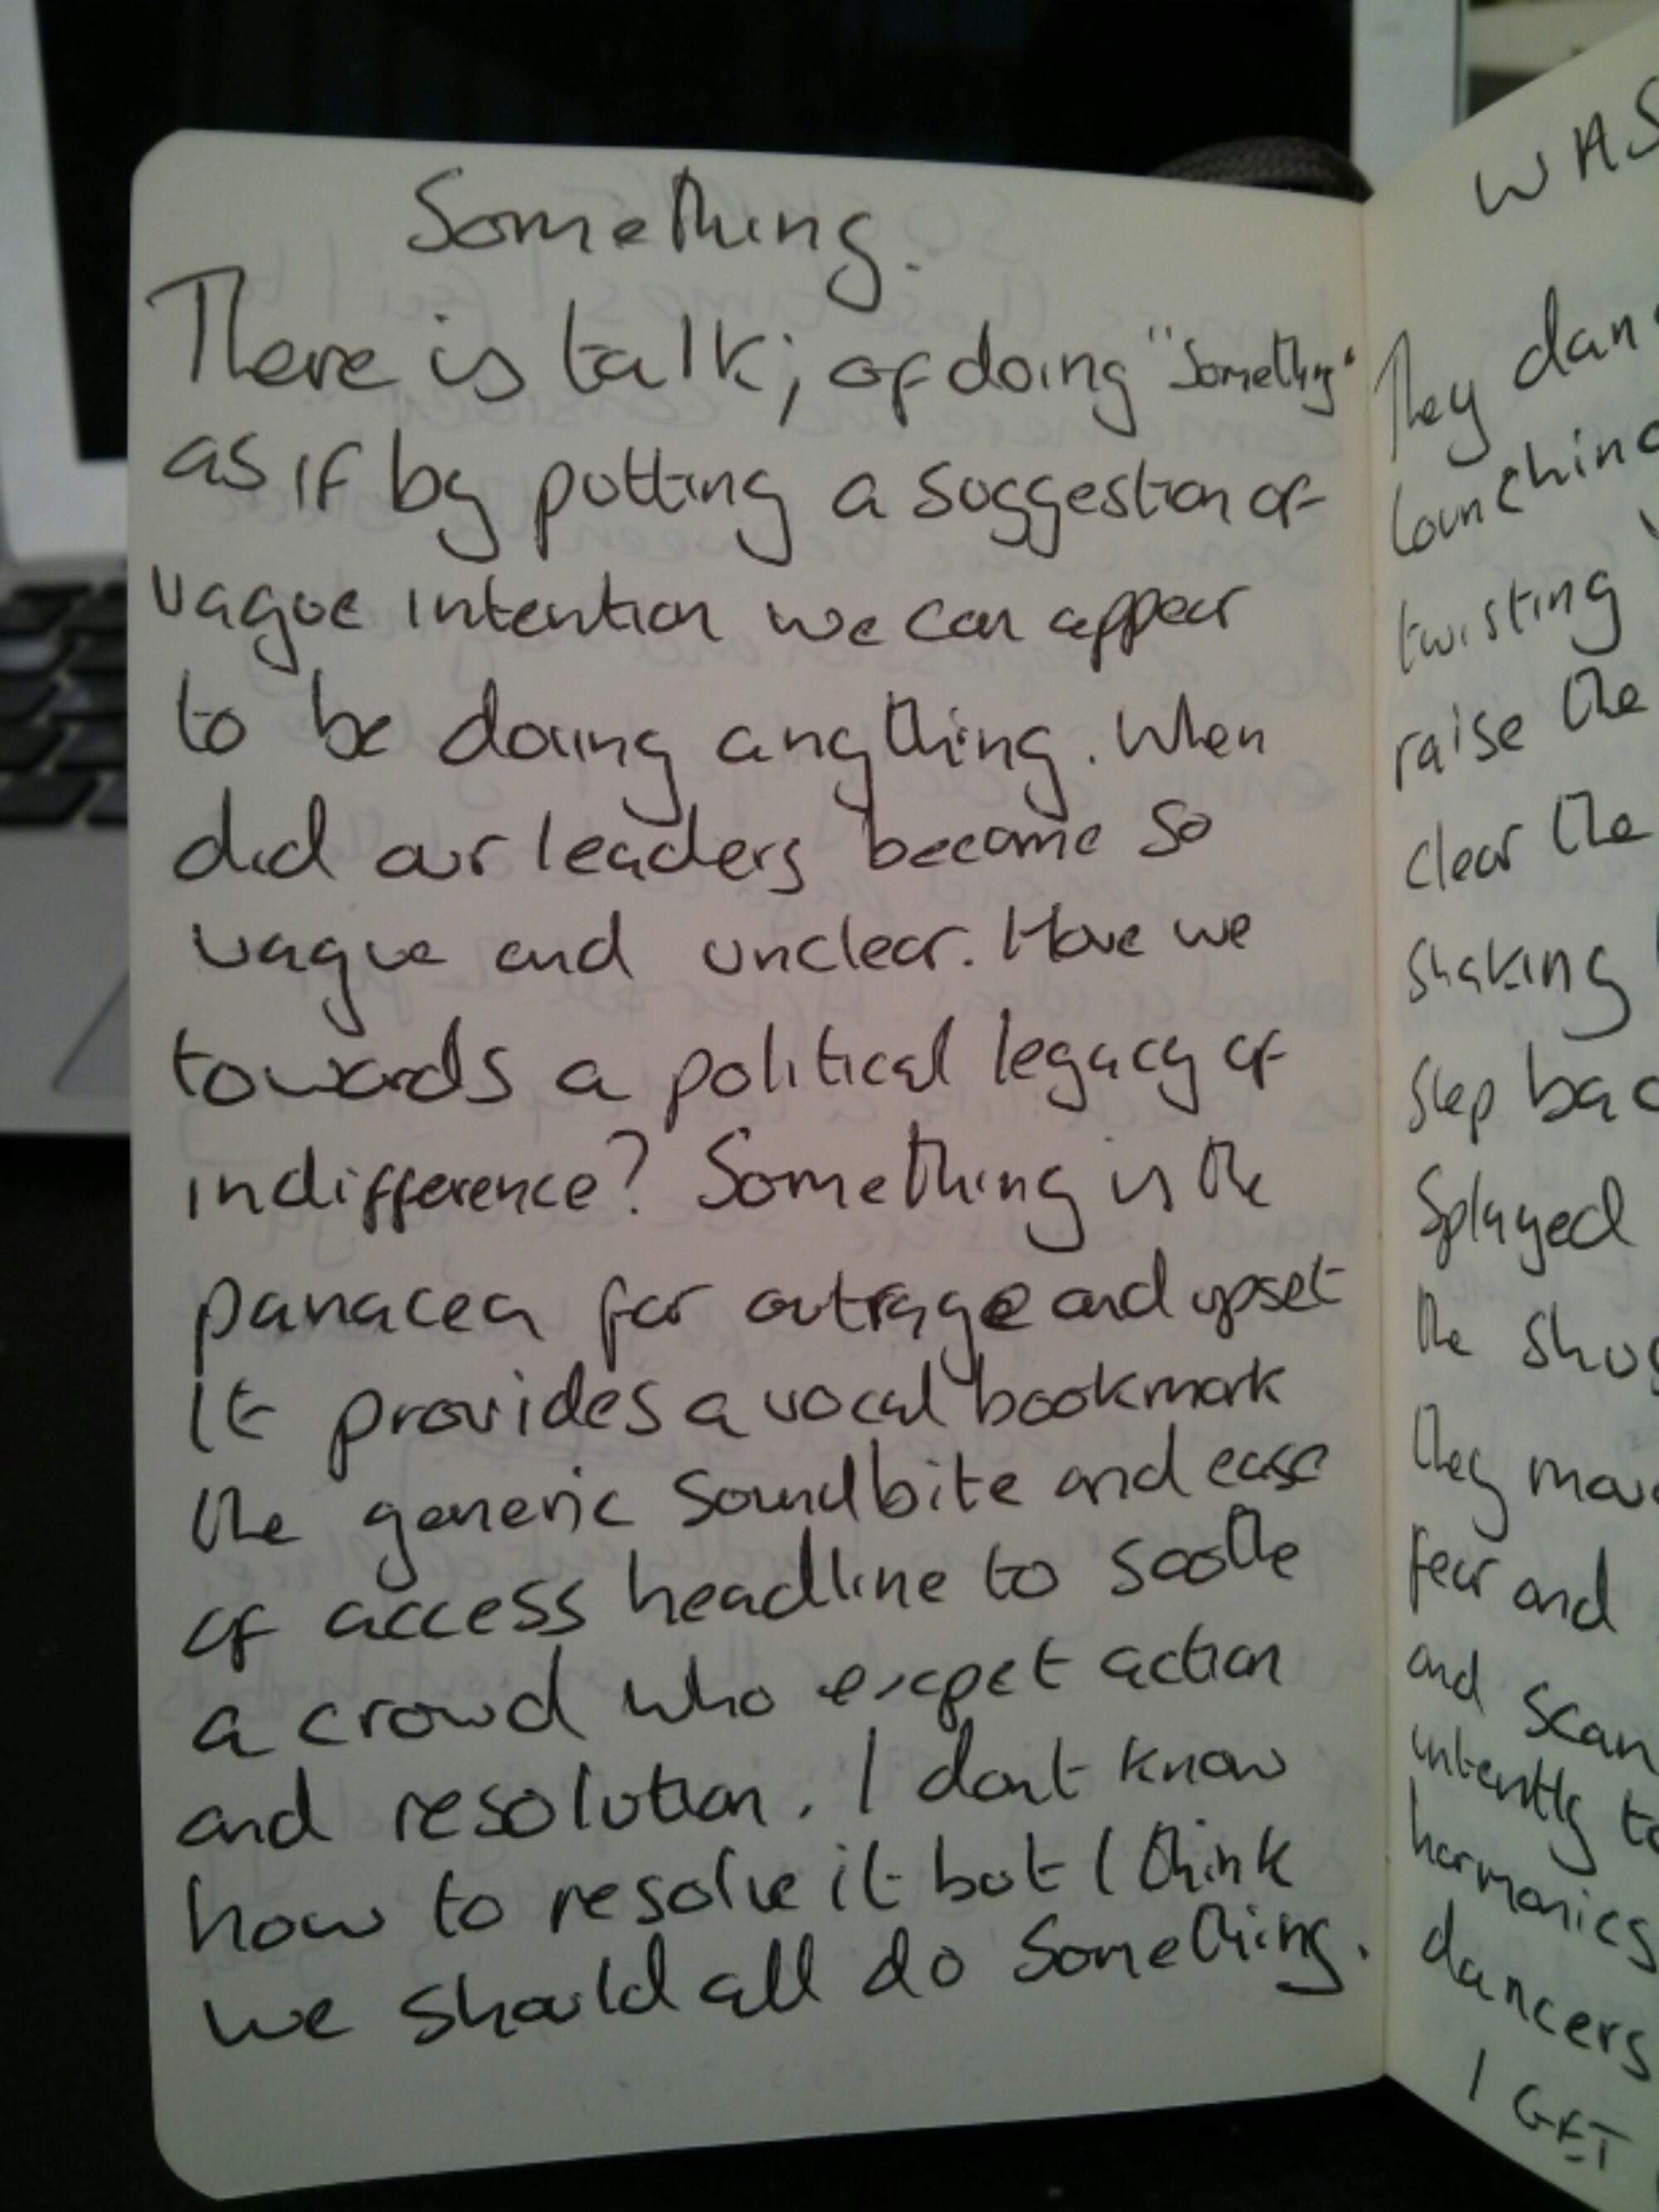 Something.
There is talk; of doing "Something"
as if by putting a suggestion of
vague intention we can appear
to be doing anything. When
did our leaders become so
vague and unclear. Have we
towards a political legacy of
indifference? Something is the
panacea for outrage and upset
It provides a vocal bookmark
the generic soundbite and ease
of access headline to soothe
a crowd who expet action
and resolution. I dont know
how to resolve it but I think
we should all do something.
WAS
They dan
launching
twisting
raise the
clear the
shaking
step bac
Splayed
the
they
fear and
and scan
intently to
harmonics
dancers
I GET